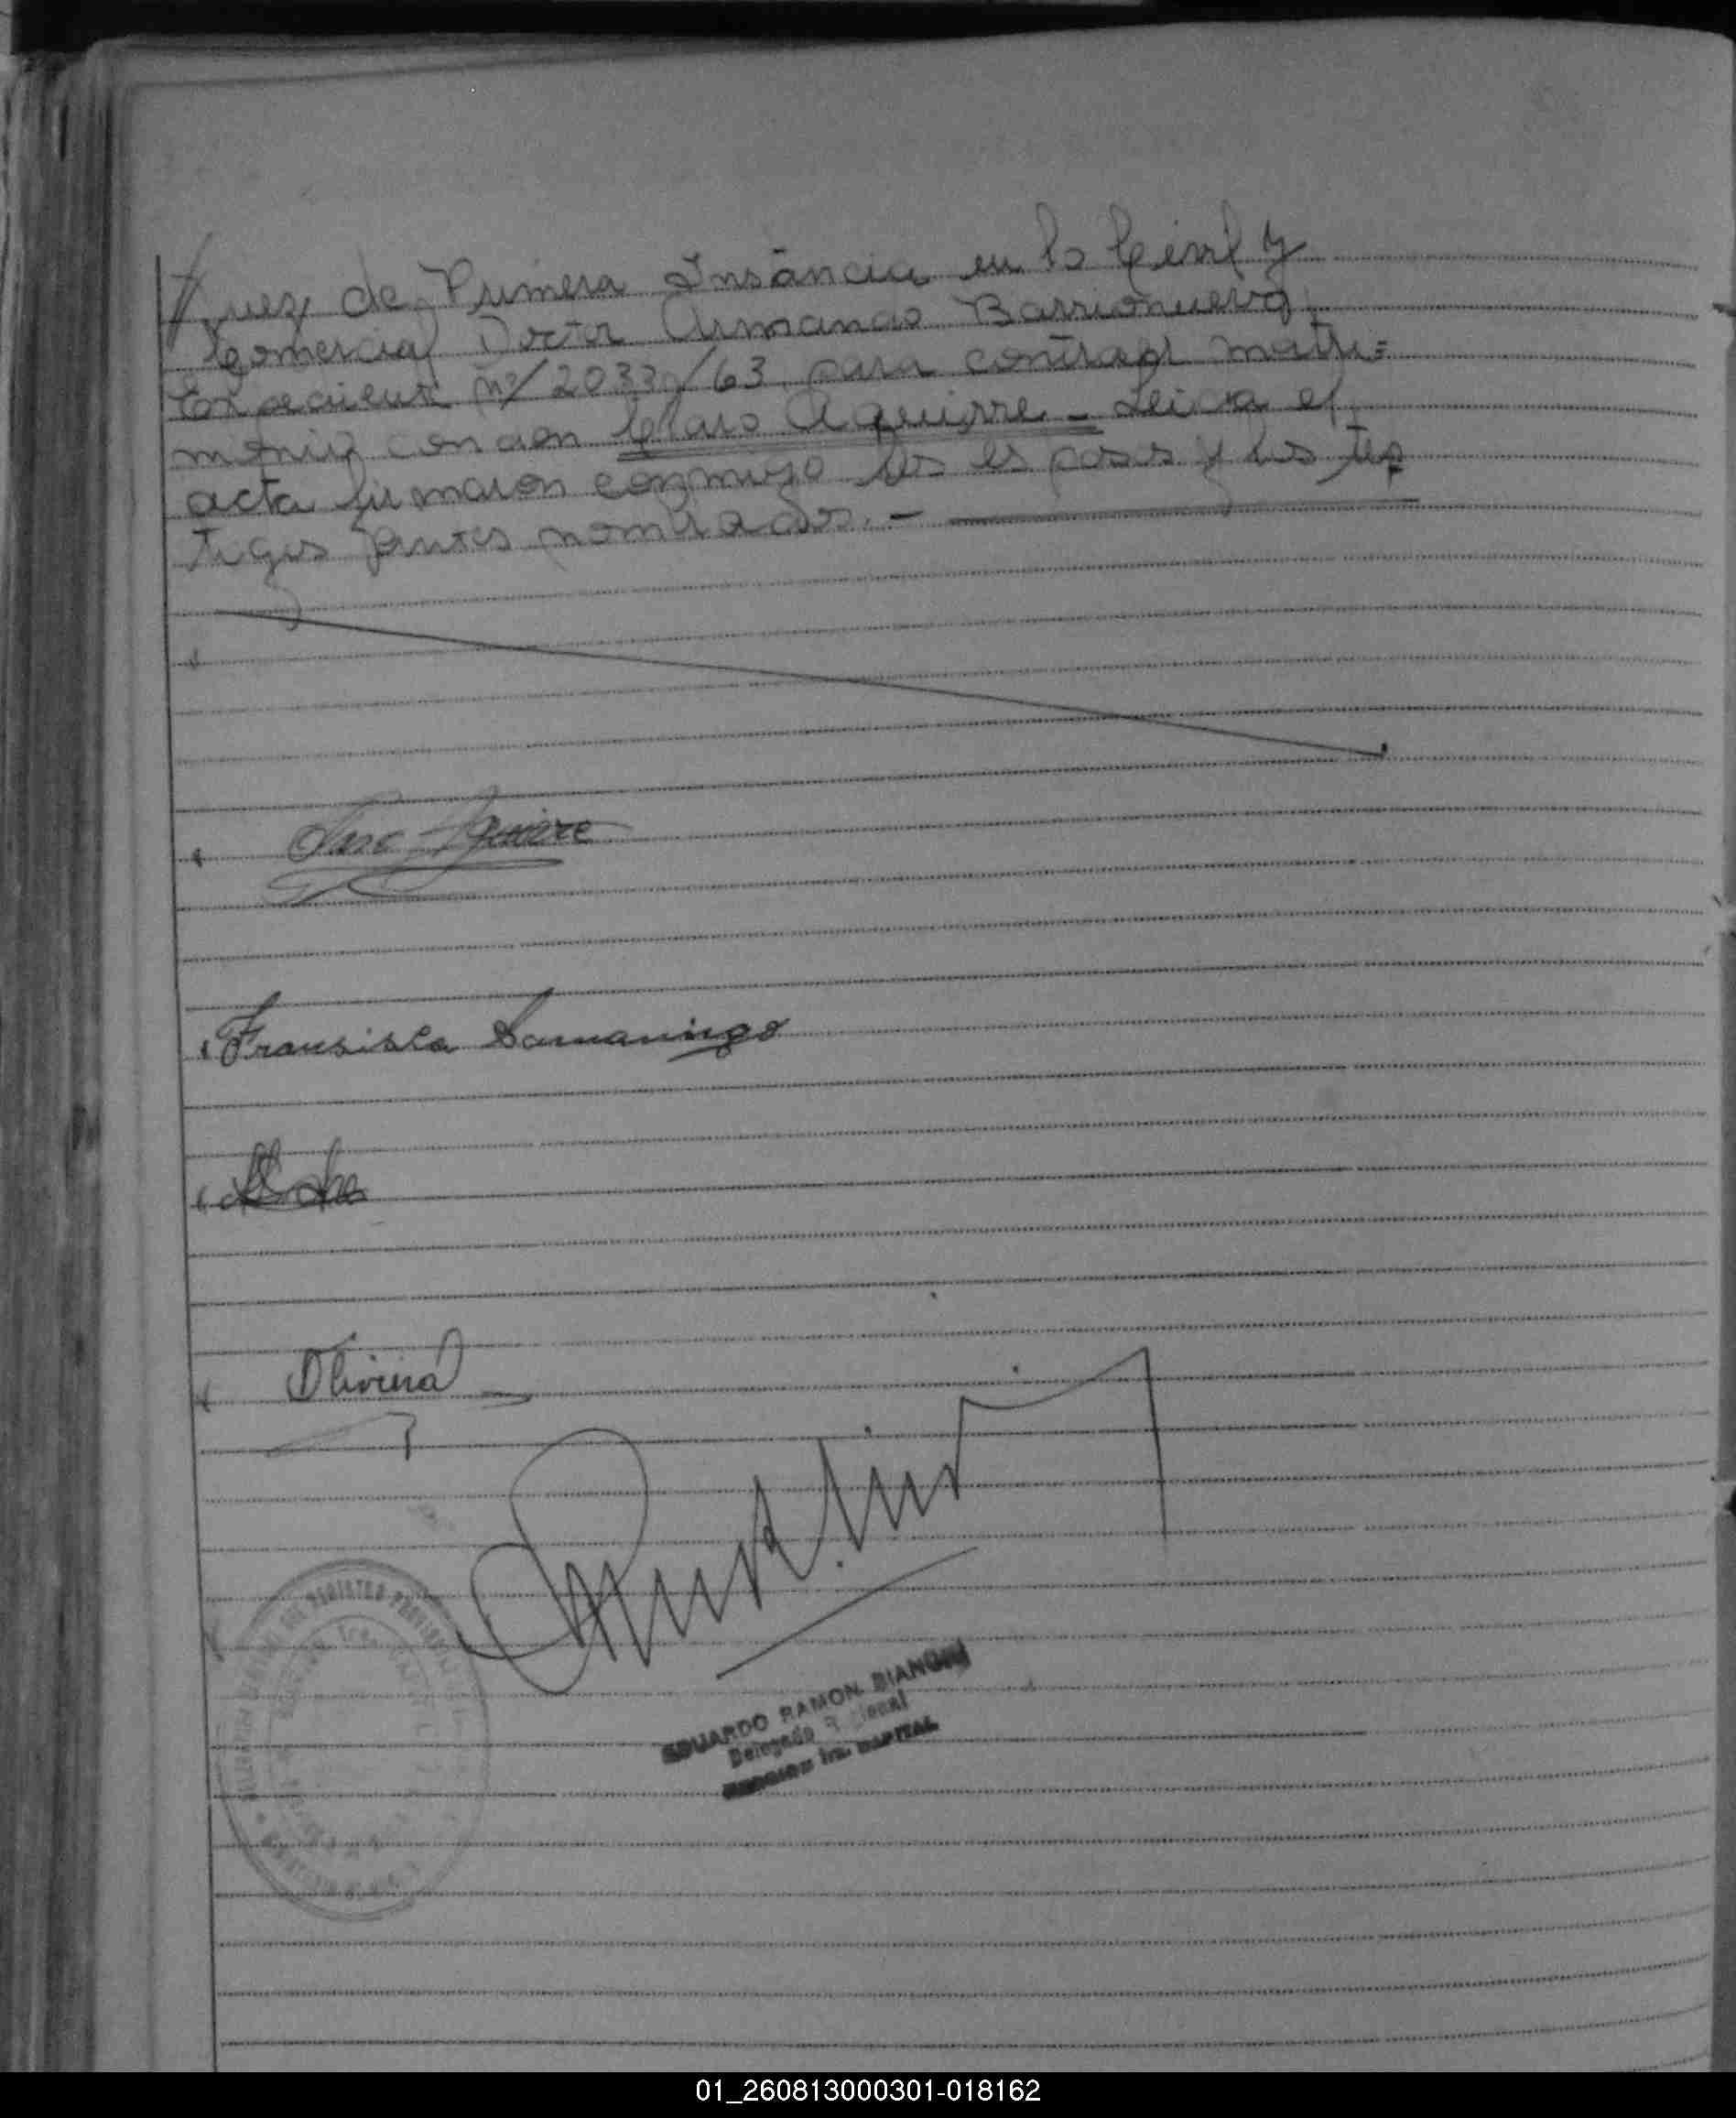 Juez de Primera Insáncia en lo Civil y
Comercial Doctor Armando Barrionuevo,
Expediente nº/2033/63, para contraer matri=
monio con don Claro Aguirre - Leida el
acta firmaron conmigo los esposos y los tes
tigos antes nombrados. -
Aguirre
Fransisca Samaniego
Oliveira
EDUARDO RAMON BIANCHI
Delegado Regional
CAPITAL
01_260813000301-018162